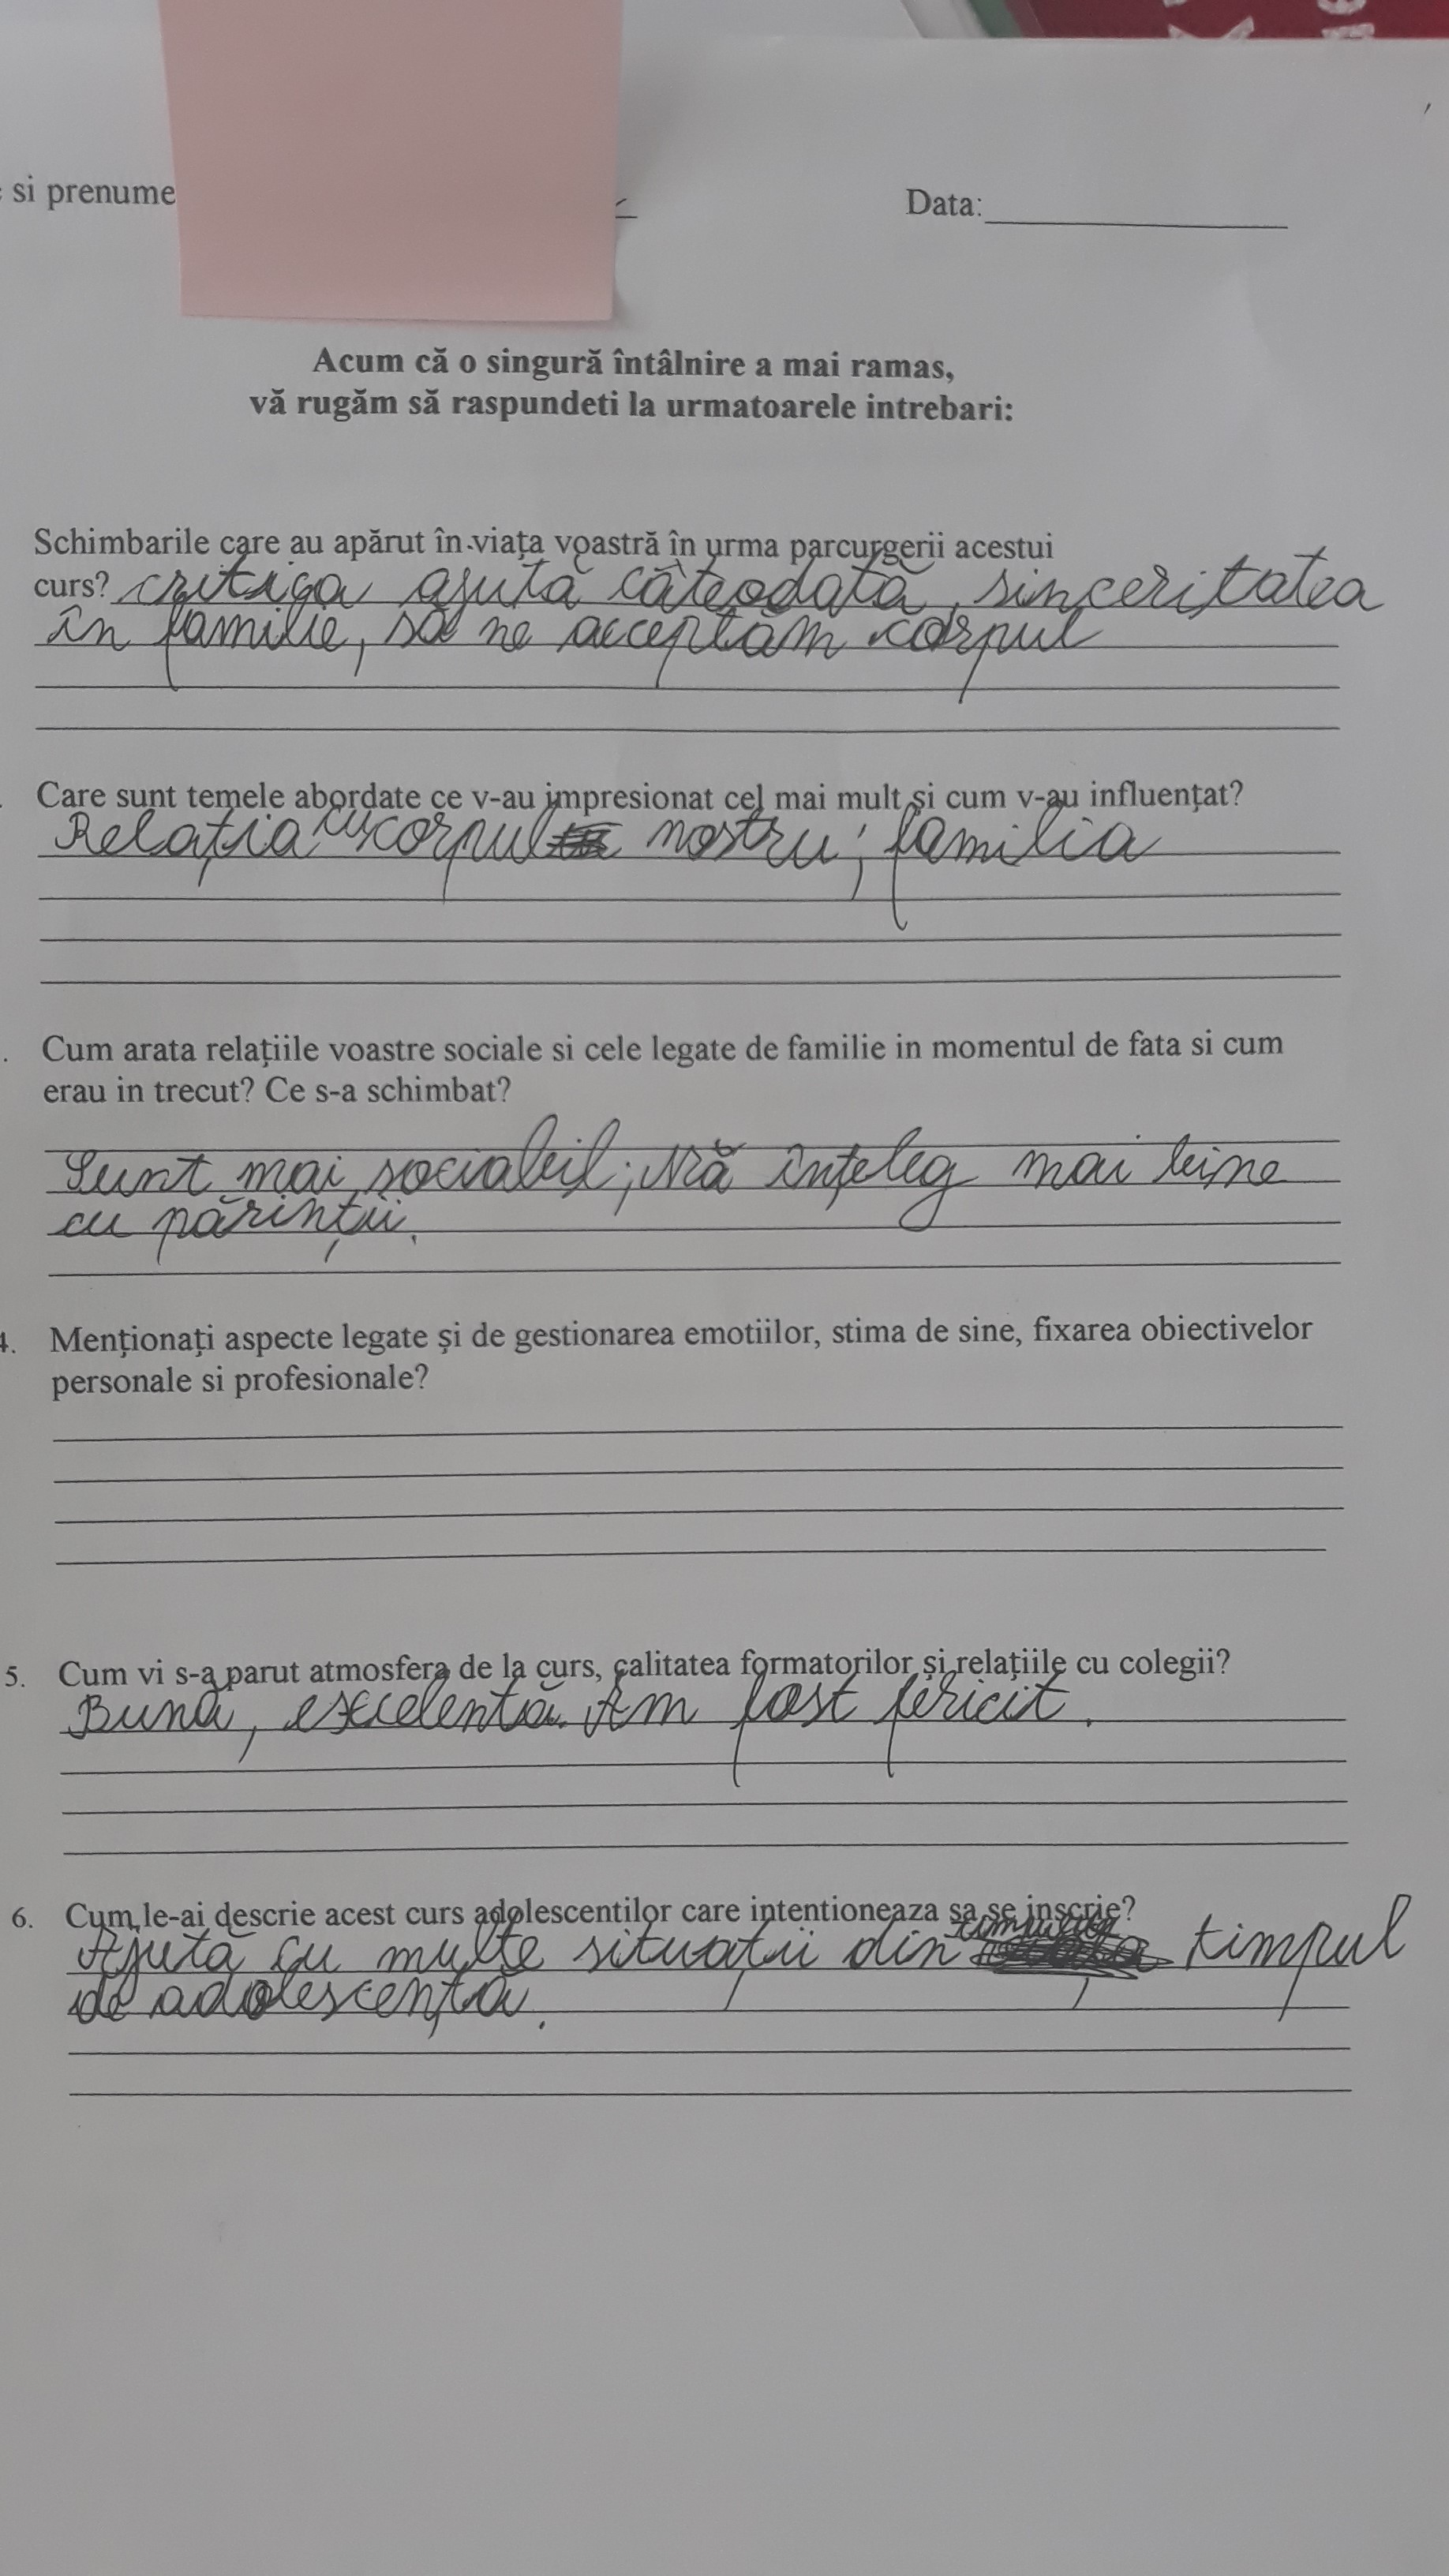 si prenume
Data:
Acum că o singură întâlnire a mai ramas,
vă rugăm să raspundeti la urmatoarele intrebari:
Schimbarile care au apărut în viața voastră în urma parcurgerii acestui
curs? critica ajută câteodată, sinceritatea
în familie, să ne acceptăm corpul
Care sunt temele abordate ce v-au impresionat cel mai mult și cum v-au influențat?
Relația cu corpul nostru; familia
Cum arata relațiile voastre sociale si cele legate de familie in momentul de fata si cum
erau in trecut? Ce s-a schimbat?
Sunt mai sociabil; Mă înțeleg mai bine
cu părinții.
4. Menționați aspecte legate și de gestionarea emotiilor, stima de sine, fixarea obiectivelor
personale si profesionale?
5. Cum vi s-a parut atmosfera de la curs, calitatea formatorilor și relațiile cu colegii?
Bună, excelentă. Am fost fericit.
6. Cum le-ai descrie acest curs adolescentilor care intentioneaza sa se inscrie?
Ajută cu multe situații din timpul
de adolescență.